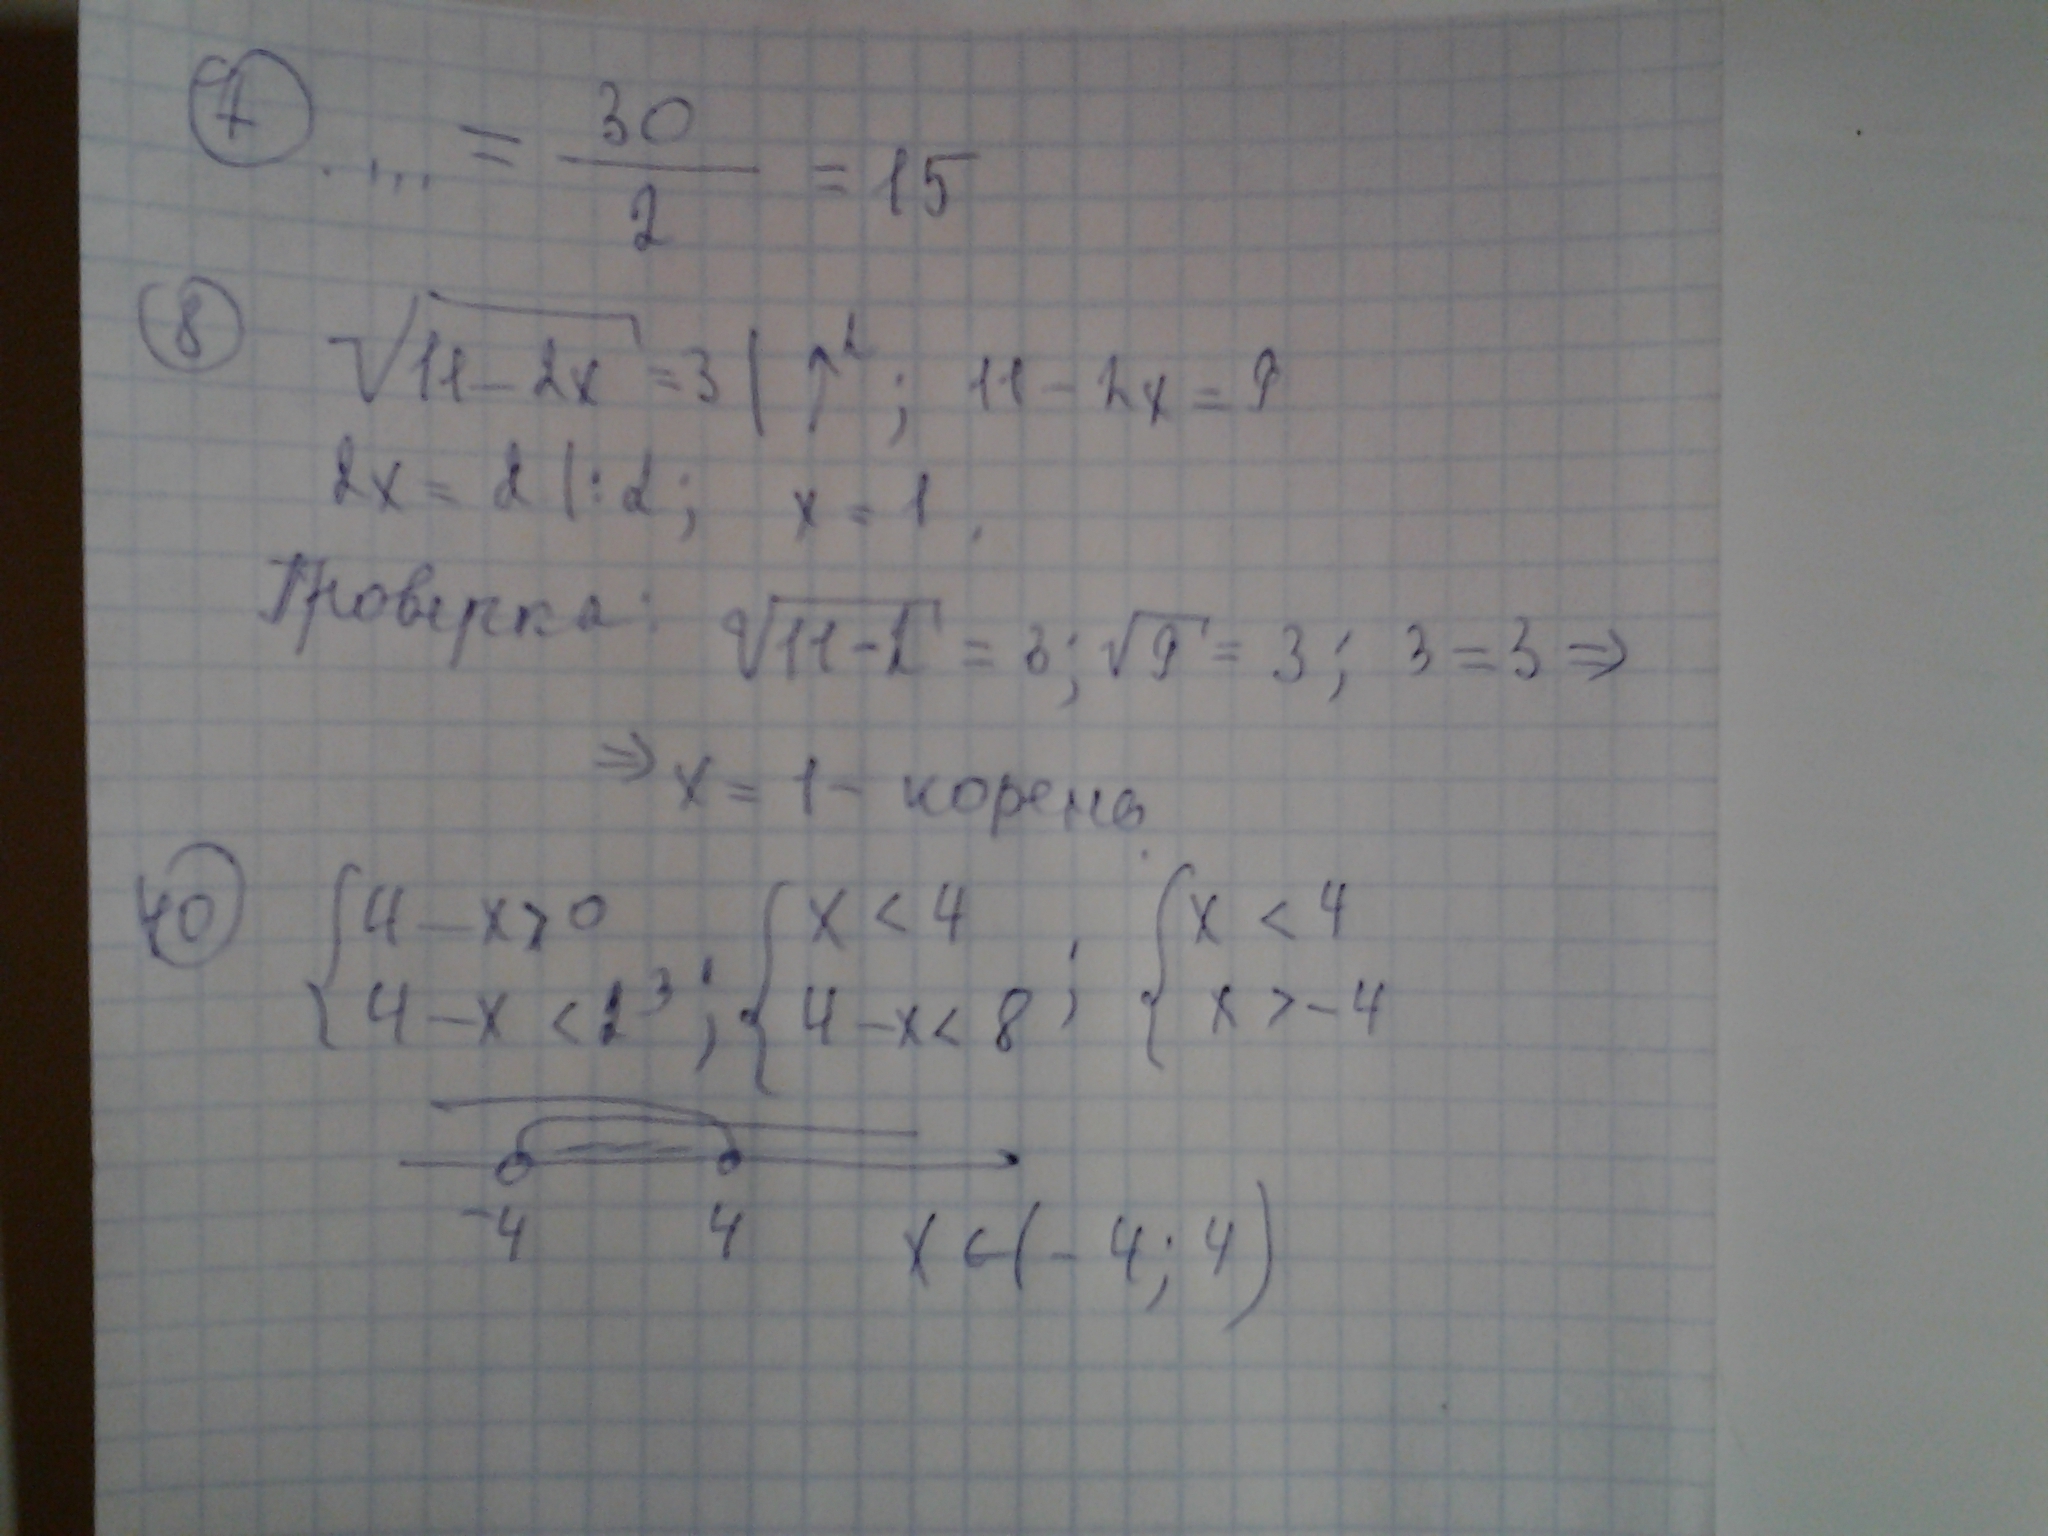 7 ..... = 30/2 = 15
8 √(11-2x) = 3 | ↑²; 11-2x = 9
2x = 2 |:2; x = 1.
Проверка: √(11-2) = 3; √9 = 3; 3 = 3 ⇒
⇒ x = 1 - корень
10 { 4-x>0 { x<4 { x<4
4-x<2³; 4-x<8; x>-4
-4 4 x∈(-4; 4)